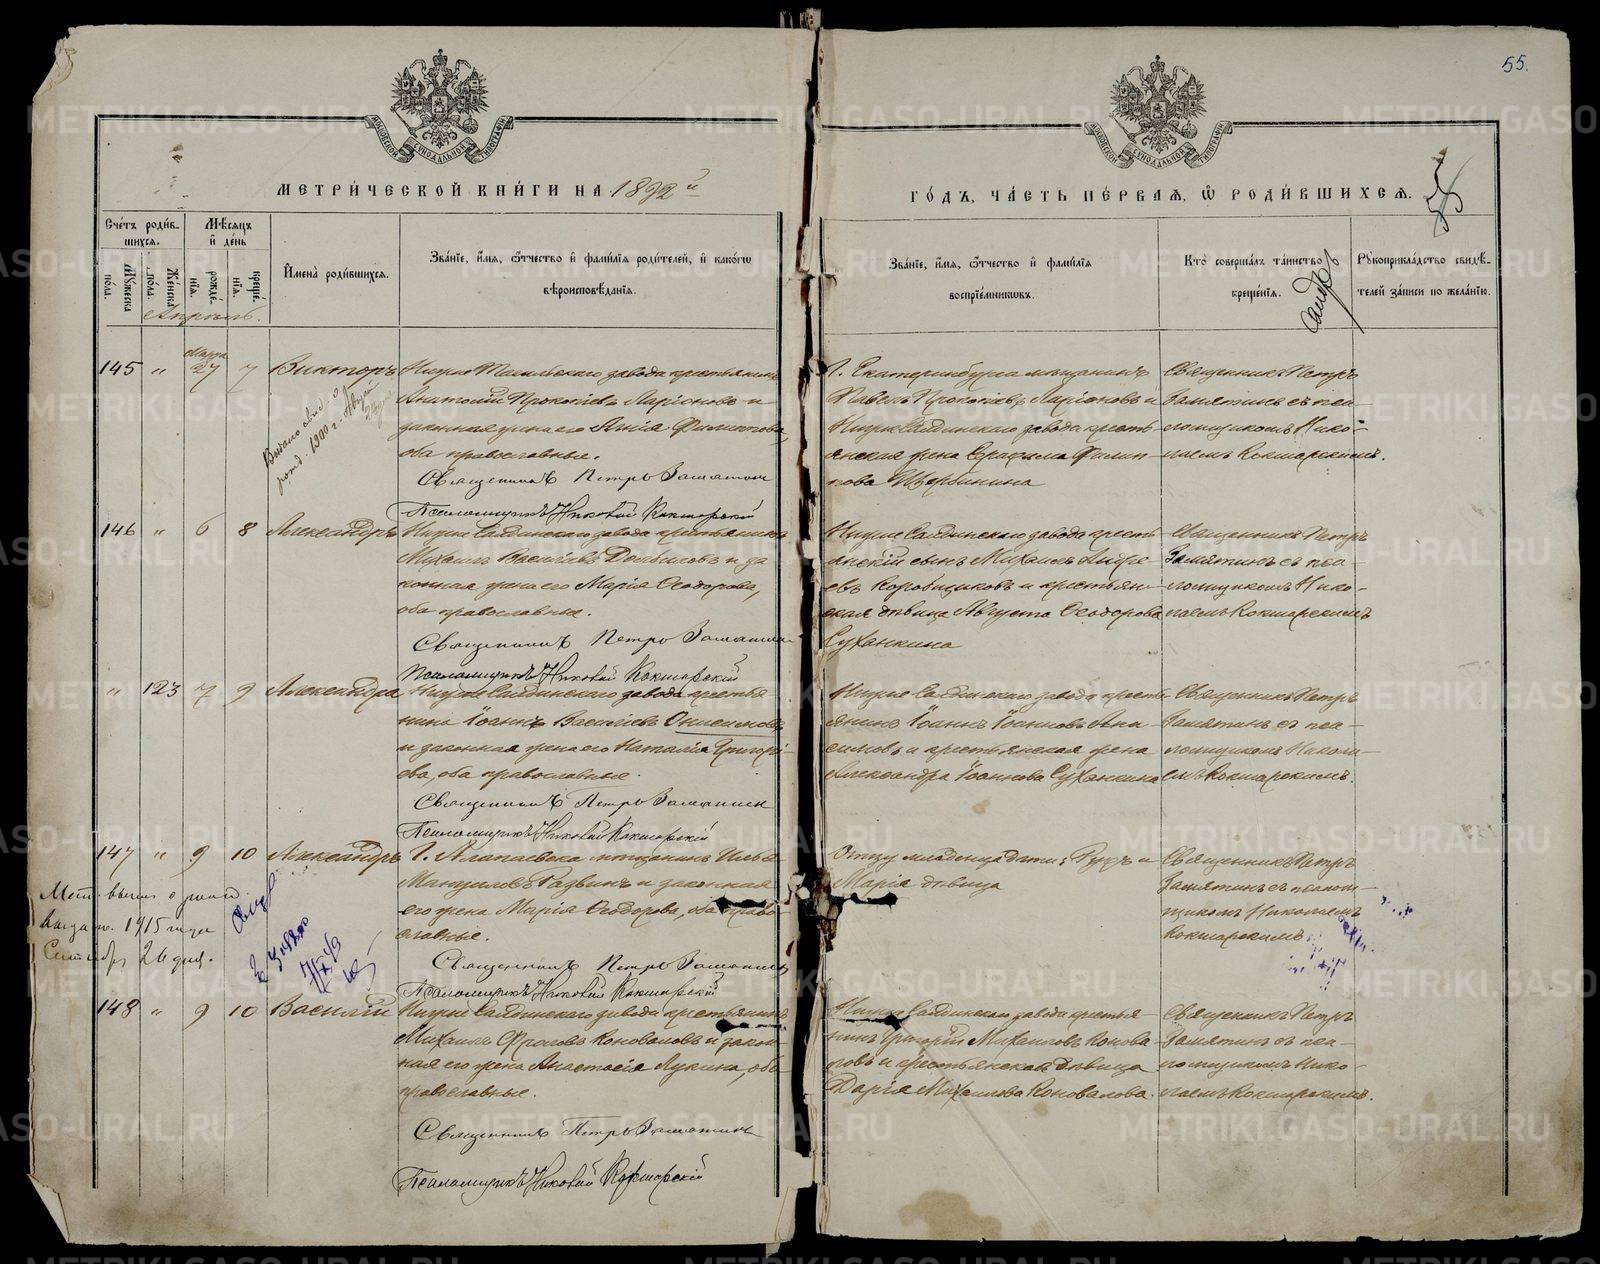 55.
МОСКОВСКОЙ СѴНОДАЛЬНОЙ ТИПОГРАФІИ
МОСКОВСКОЙ СѴНОДАЛЬНОЙ ТИПОГРАФІИ
МЕТРИ́ЧЕСКОЙ КНИ́ГИ НА 1892 й
ГО́ДЪ, ЧА́СТЬ ПЕ́РВАЯ, Ѽ РОДИ́ВШИХСѦ.
Сче́тъ роди́в-
шихся.
Мѣ́сяцъ
и҆ де́нь
Му́жеска по́ла.
Же́нска по́ла.
рожде́нїѧ.
креще́нїѧ.
Апрѣль.
И҆мена̀ роди́вшихся.
Зва́нїе, и҆́мя, ѻ҆́тчество и҆ фами́лїѧ роди́телей, и҆ како́гѡ
вѣроисповѣ́данїѧ.
Зва́нїе, и҆́мя, ѻ҆́тчество и҆ фами́лїѧ
воспрїе́мниковъ.
Кто̀ соверша́лъ та́инство
креще́нїѧ.
Рꙋкоприкла́дство свидѣ́-
телей за́писи по жела́нїю.
145 " Марта 27 7 Викторъ
Нижне Тагильскаго завода крестьянинъ
Анатолій Прокопіевъ Ларіоновъ и
законная жена его Анна Филиппова,
оба православные.
Священникъ Петръ Замятинъ
Псаломщикъ Николай Кокшарскій
Г. Екатеринбурга мѣщанинъ
Павелъ Прокопіевъ Ларіоновъ и
Нижне Салдинскаго завода кресть-
янская жена Серафима Филип-
пова Щербинина
Священникъ Петръ
Замятинъ съ пса-
ломщикомъ Нико-
лаемъ Кокшарскимъ.
146 " 6 8 Александръ
Нижне Салдинскаго завода крестьянинъ
Михаилъ Васильевъ Долбиловъ и за
конная жена его Марія Ѳеодорова,
оба православные.
Священникъ Петръ Замятинъ
Псаломщикъ Николай Кокшарскій
Нижне Салдинскаго завода кресть
янскій сынъ Михаилъ Андре-
евъ Коробщиковъ и крестьян-
ская дѣвица Августа Ѳеодорова
Суханкина
Священникъ Петръ
Замятинъ съ пса-
ломщикомъ Нико-
лаемъ Кокшарскимъ
" 123 7 9 Александра
Нижне Салдинскаго завода крестья-
нинъ Іоаннъ Васильевъ Онисимовъ
и законная жена его Наталія Григорі-
ева, оба православные.
Священникъ Петръ Замятинъ
Псаломщикъ Николай Кокшарскій
Нижне Салдинскаго завода кресть-
янинъ Іоаннъ Іоанновъ Ани-
симовъ и крестьянская жена
Александра Іоаннова Суханкина
Священникъ Петръ
Замятинъ съ пса-
ломщикомъ Никола-
емъ Кокшарскимъ.
147 " 9 10 Александръ
Г. Алапаевска мѣщанинъ
и законная
его жена Марія Ѳеодорова, оба право-
славные.
Священникъ Петръ Замятинъ
Псаломщикъ Николай Кокшарскій
Отцу младенца дѣти: Руфъ и
Марія дѣвица
Священникъ Петръ
Замятинъ съ псалом-
щикомъ Николаемъ
Кокшарскимъ
1915 года
Сентября 26 дня.
148 " 9 10 Василій
Нижне Салдинскаго завода крестьянинъ
Михаилъ Фроловъ Коноваловъ и закон-
ная его жена Анастасія Лукина, оба
православные.
Священникъ Петръ Замятинъ
Псаломщикъ Николай Кокшарскій
Нижне Салдинскаго завода крестья-
нинъ Григорій Михаиловъ Конова-
ловъ и крестьянская дѣвица
Дарія Михаилова Коновалова.
Священникъ Петръ
Замятинъ съ пса-
ломщикомъ Нико-
лаемъ Кокшарскимъ.
METRIKI.GASO-URAL.RU